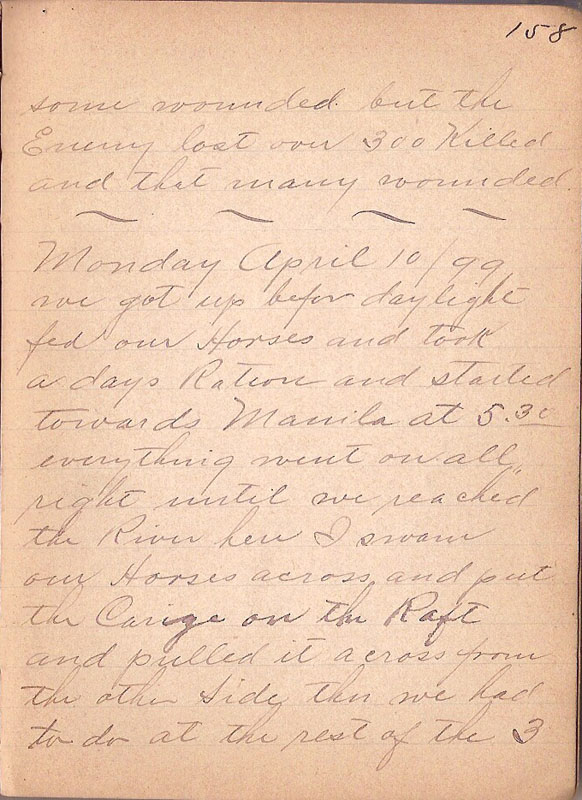 158
some wounded. but the
Enemy lost over 300 Killed
and that many wounded.
Monday April 10/99
we got up befor daylight
fed our Horses and took
a days Ration and started
towards Manila at 5.30
everything went on all
right until we reached
the River here I swam
our Horses across and put
the Carige on the Raft
and pulled it across from
the other Side then we had
to do at the rest of the 3